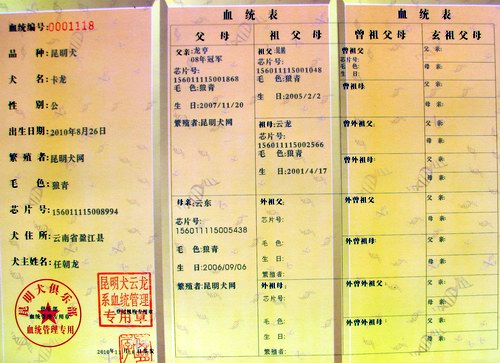 血统编号:0001118
品 种: 昆明犬
犬 名: 卡龙
性 别: 公
出生日期: 2010年8月26日
繁 殖 者: 昆明犬网
毛 色: 狼青
芯 片 号: 156011115008994
犬 住 所: 云南省盈江县
犬主姓名: 任朝龙
昆明犬俱乐部
血统管理专用章
昆明犬云龙
系血统管理
专用章
血统表
父母
父亲:龙亨
08年冠军
芯片号:
156011115001868
毛 色:狼青
生 日:2007/11/20
繁殖者:昆明犬网
母亲:云东
芯片号:
156011115005438
毛 色:狼青
生 日:2006/09/06
繁殖者:昆明犬网
祖父母
祖父:
芯片号:
156011115001048
毛 色:狼青
生 日:2005/2/2
祖母:云龙
芯片号:
156011115002566
毛 色:狼青
生 日:2001/4/17
外祖父:
芯片号:
毛 色:
生 日:
繁殖者:
外祖母:
芯片号:
毛 色:
生 日:
繁殖者:
血统表
曾祖父母
曾祖父:
芯片号:
毛 色:
生 日:
曾祖母:
曾外祖父:
曾外祖母:
外曾祖父:
外曾祖母:
曾外祖父:
曾外祖母:
玄祖父母
父亲:
母亲:
父亲:
母亲:
父亲:
母亲:
父亲:
母亲:
父亲:
母亲:
父亲:
母亲:
父亲:
母亲:
父亲:
母亲: